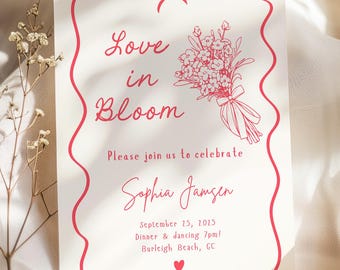 Love
in
Bloom
Please join us to celebrate
Sophia Jamsen
September 25, 2025
Dinner & dancing 7pm!
Burleigh Beach, GC